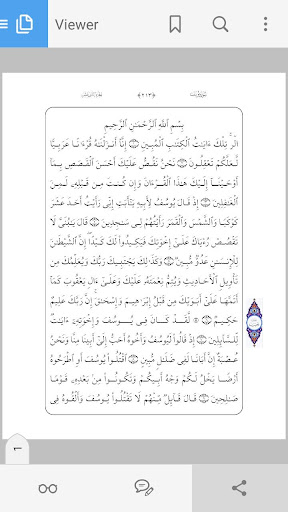 Viewer
﴿٢١٣﴾
بِسْمِ ٱللَّهِ ٱلرَّحْمَٰنِ ٱلرَّحِيمِ
الٓر ۚ تِلْكَ ءَايَٰتُ ٱلْكِتَٰبِ ٱلْمُبِينِ ۝ إِنَّآ أَنزَلْنَٰهُ قُرْءَٰنًا عَرَبِيًّا
لَّعَلَّكُمْ تَعْقِلُونَ ۝ نَحْنُ نَقُصُّ عَلَيْكَ أَحْسَنَ ٱلْقَصَصِ بِمَآ
أَوْحَيْنَآ إِلَيْكَ هَٰذَا ٱلْقُرْءَانَ وَإِن كُنتَ مِن قَبْلِهِۦ لَمِنَ
ٱلْغَٰفِلِينَ ۝ إِذْ قَالَ يُوسُفُ لِأَبِيهِ يَٰٓأَبَتِ إِنِّى رَأَيْتُ أَحَدَ عَشَرَ
كَوْكَبًا وَٱلشَّمْسَ وَٱلْقَمَرَ رَأَيْتُهُمْ لِى سَٰجِدِينَ ۝ قَالَ يَٰبُنَىَّ لَا
تَقْصُصْ رُءْيَاكَ عَلَىٰٓ إِخْوَتِكَ فَيَكِيدُوا۟ لَكَ كَيْدًا ۖ إِنَّ ٱلشَّيْطَٰنَ
لِلْإِنسَٰنِ عَدُوٌّ مُّبِينٌ ۝ وَكَذَٰلِكَ يَجْتَبِيكَ رَبُّكَ وَيُعَلِّمُكَ مِن
تَأْوِيلِ ٱلْأَحَادِيثِ وَيُتِمُّ نِعْمَتَهُۥ عَلَيْكَ وَعَلَىٰٓ ءَالِ يَعْقُوبَ كَمَآ
أَتَمَّهَا عَلَىٰٓ أَبَوَيْكَ مِن قَبْلُ إِبْرَٰهِيمَ وَإِسْحَٰقَ ۚ إِنَّ رَبَّكَ عَلِيمٌ
حَكِيمٌ ۝ ۞ لَّقَدْ كَانَ فِى يُوسُفَ وَإِخْوَتِهِۦٓ ءَايَٰتٌ
لِّلسَّآئِلِينَ ۝ إِذْ قَالُوا۟ لَيُوسُفُ وَأَخُوهُ أَحَبُّ إِلَىٰٓ أَبِينَا مِنَّا وَنَحْنُ
عُصْبَةٌ إِنَّ أَبَانَا لَفِى ضَلَٰلٍ مُّبِينٍ ۝ ٱقْتُلُوا۟ يُوسُفَ أَوِ ٱطْرَحُوهُ
أَرْضًا يَخْلُ لَكُمْ وَجْهُ أَبِيكُمْ وَتَكُونُوا۟ مِنۢ بَعْدِهِۦ قَوْمًا
صَٰلِحِينَ ۝ قَالَ قَآئِلٌ مِّنْهُمْ لَا تَقْتُلُوا۟ يُوسُفَ وَأَلْقُوهُ فِى
1